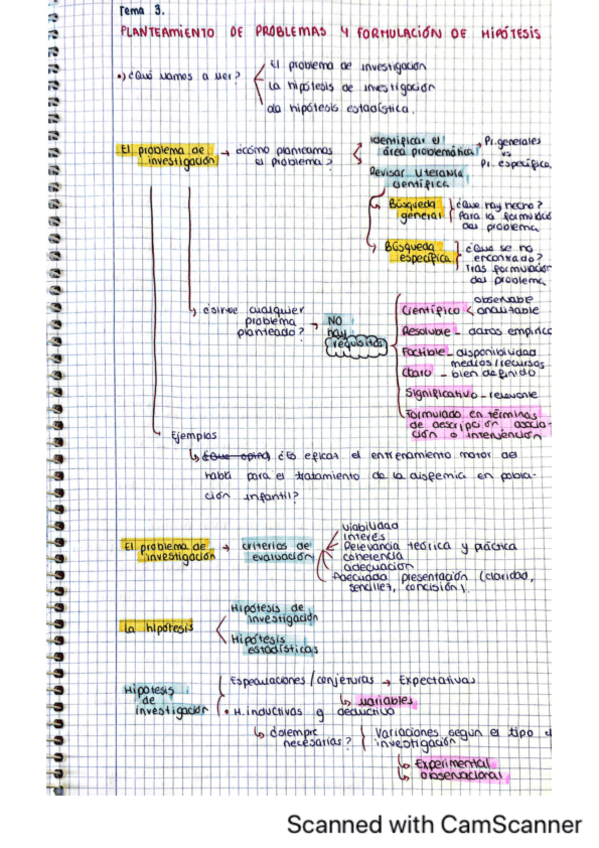 Tema 3.
PLANTEAMIENTO DE PROBLEMAS Y FORMULACIÓN DE HIPÓTESIS
•) ¿Qué vamos a ver?
El problema de investigación
La hipótesis de investigación
La hipótesis estadística.
El problema de investigación → ¿cómo planteamos el problema?
Identificar el área problemática → Pr. generales vs Pr. específica
Revisar literatura científica
Búsqueda general
¿Qué hay hecho?
Para la formulación
del problema
Búsqueda específica
¿Qué se ha
encontrado?
Tras formulación
del problema
¿sirve cualquier problema planteado? → NO hay requisitos
Científico < observable analizable
Resoluble - datos empírico
Factible - disponibilidad medios/recursos
Claro - bien definido
Significativo - relevante
Formulado en términos
de descripción, asocia-
ción o intervención
Ejemplos
↳ ¿Es eficaz el entrenamiento motor del
habla para el tratamiento de la disfemia en pobla-
ción infantil?
El problema de investigación → criterios de evaluación
Viabilidad
Interés
Relevancia teórica y práctica
coherencia
adecuación
Adecuada presentación (claridad,
sencillez, concisión).
La hipótesis
Hipótesis de investigación
Hipótesis estadísticas
Hipótesis de investigación
Especulaciones / conjeturas → Expectativas
↳ variables
• H. inductivas y deductivo
↳ ¿siempre necesarias?
Variaciones según el tipo d
investigación
↳ Experimental
↳ observacional
Scanned with CamScanner